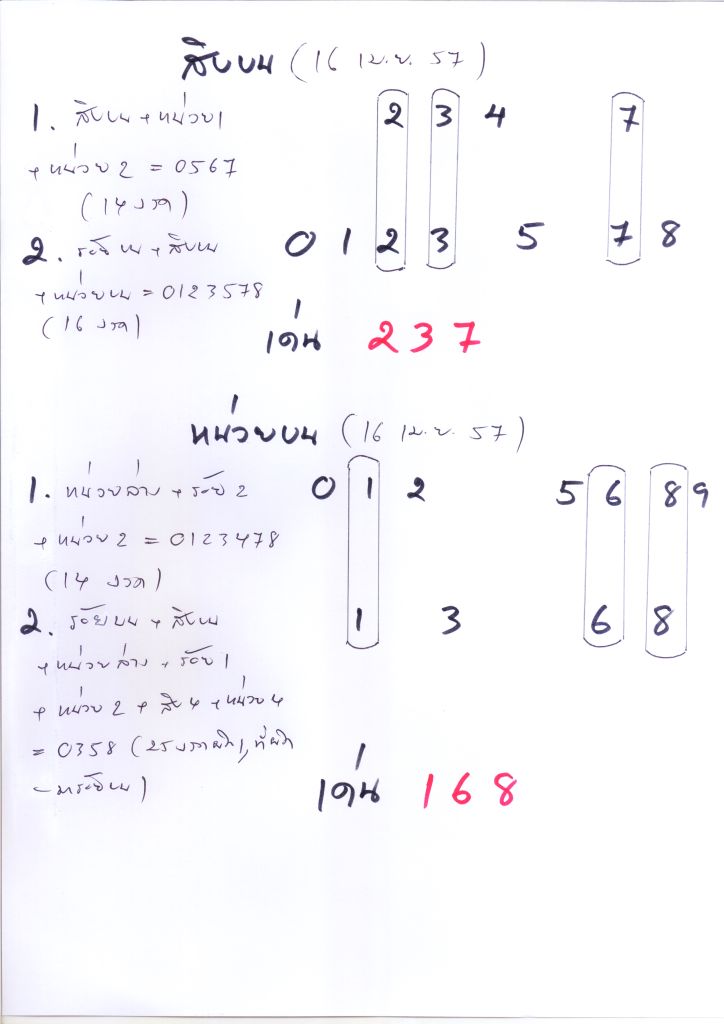 สิบบน (16 เม.ย. 57)
1. สิบบน + หน่วย 1
+ หน่วย 2 = 0567
(14 งวด)
2 3 4 7
2. ร้อยบน + สิบบน
+ หน่วยบน = 0123578
(16 งวด)
0 1 2 3 5 7 8
เด่น 2 3 7
หน่วยบน (16 เม.ย. 57)
1. หน่วยล่าง + ร้อย 2
+ หน่วย 2 = 0123478
(14 งวด)
0 1 2 5 6 8 9
2. ร้อยบน + สิบบน
+ หน่วยล่าง + ร้อย 1
+ หน่วย 2 + สิบ 4 + หน่วย 4
= 0358 (25 งวดผิด 1, ที่ผิด
มาร้อยบน)
1 3 6 8
เด่น 1 6 8